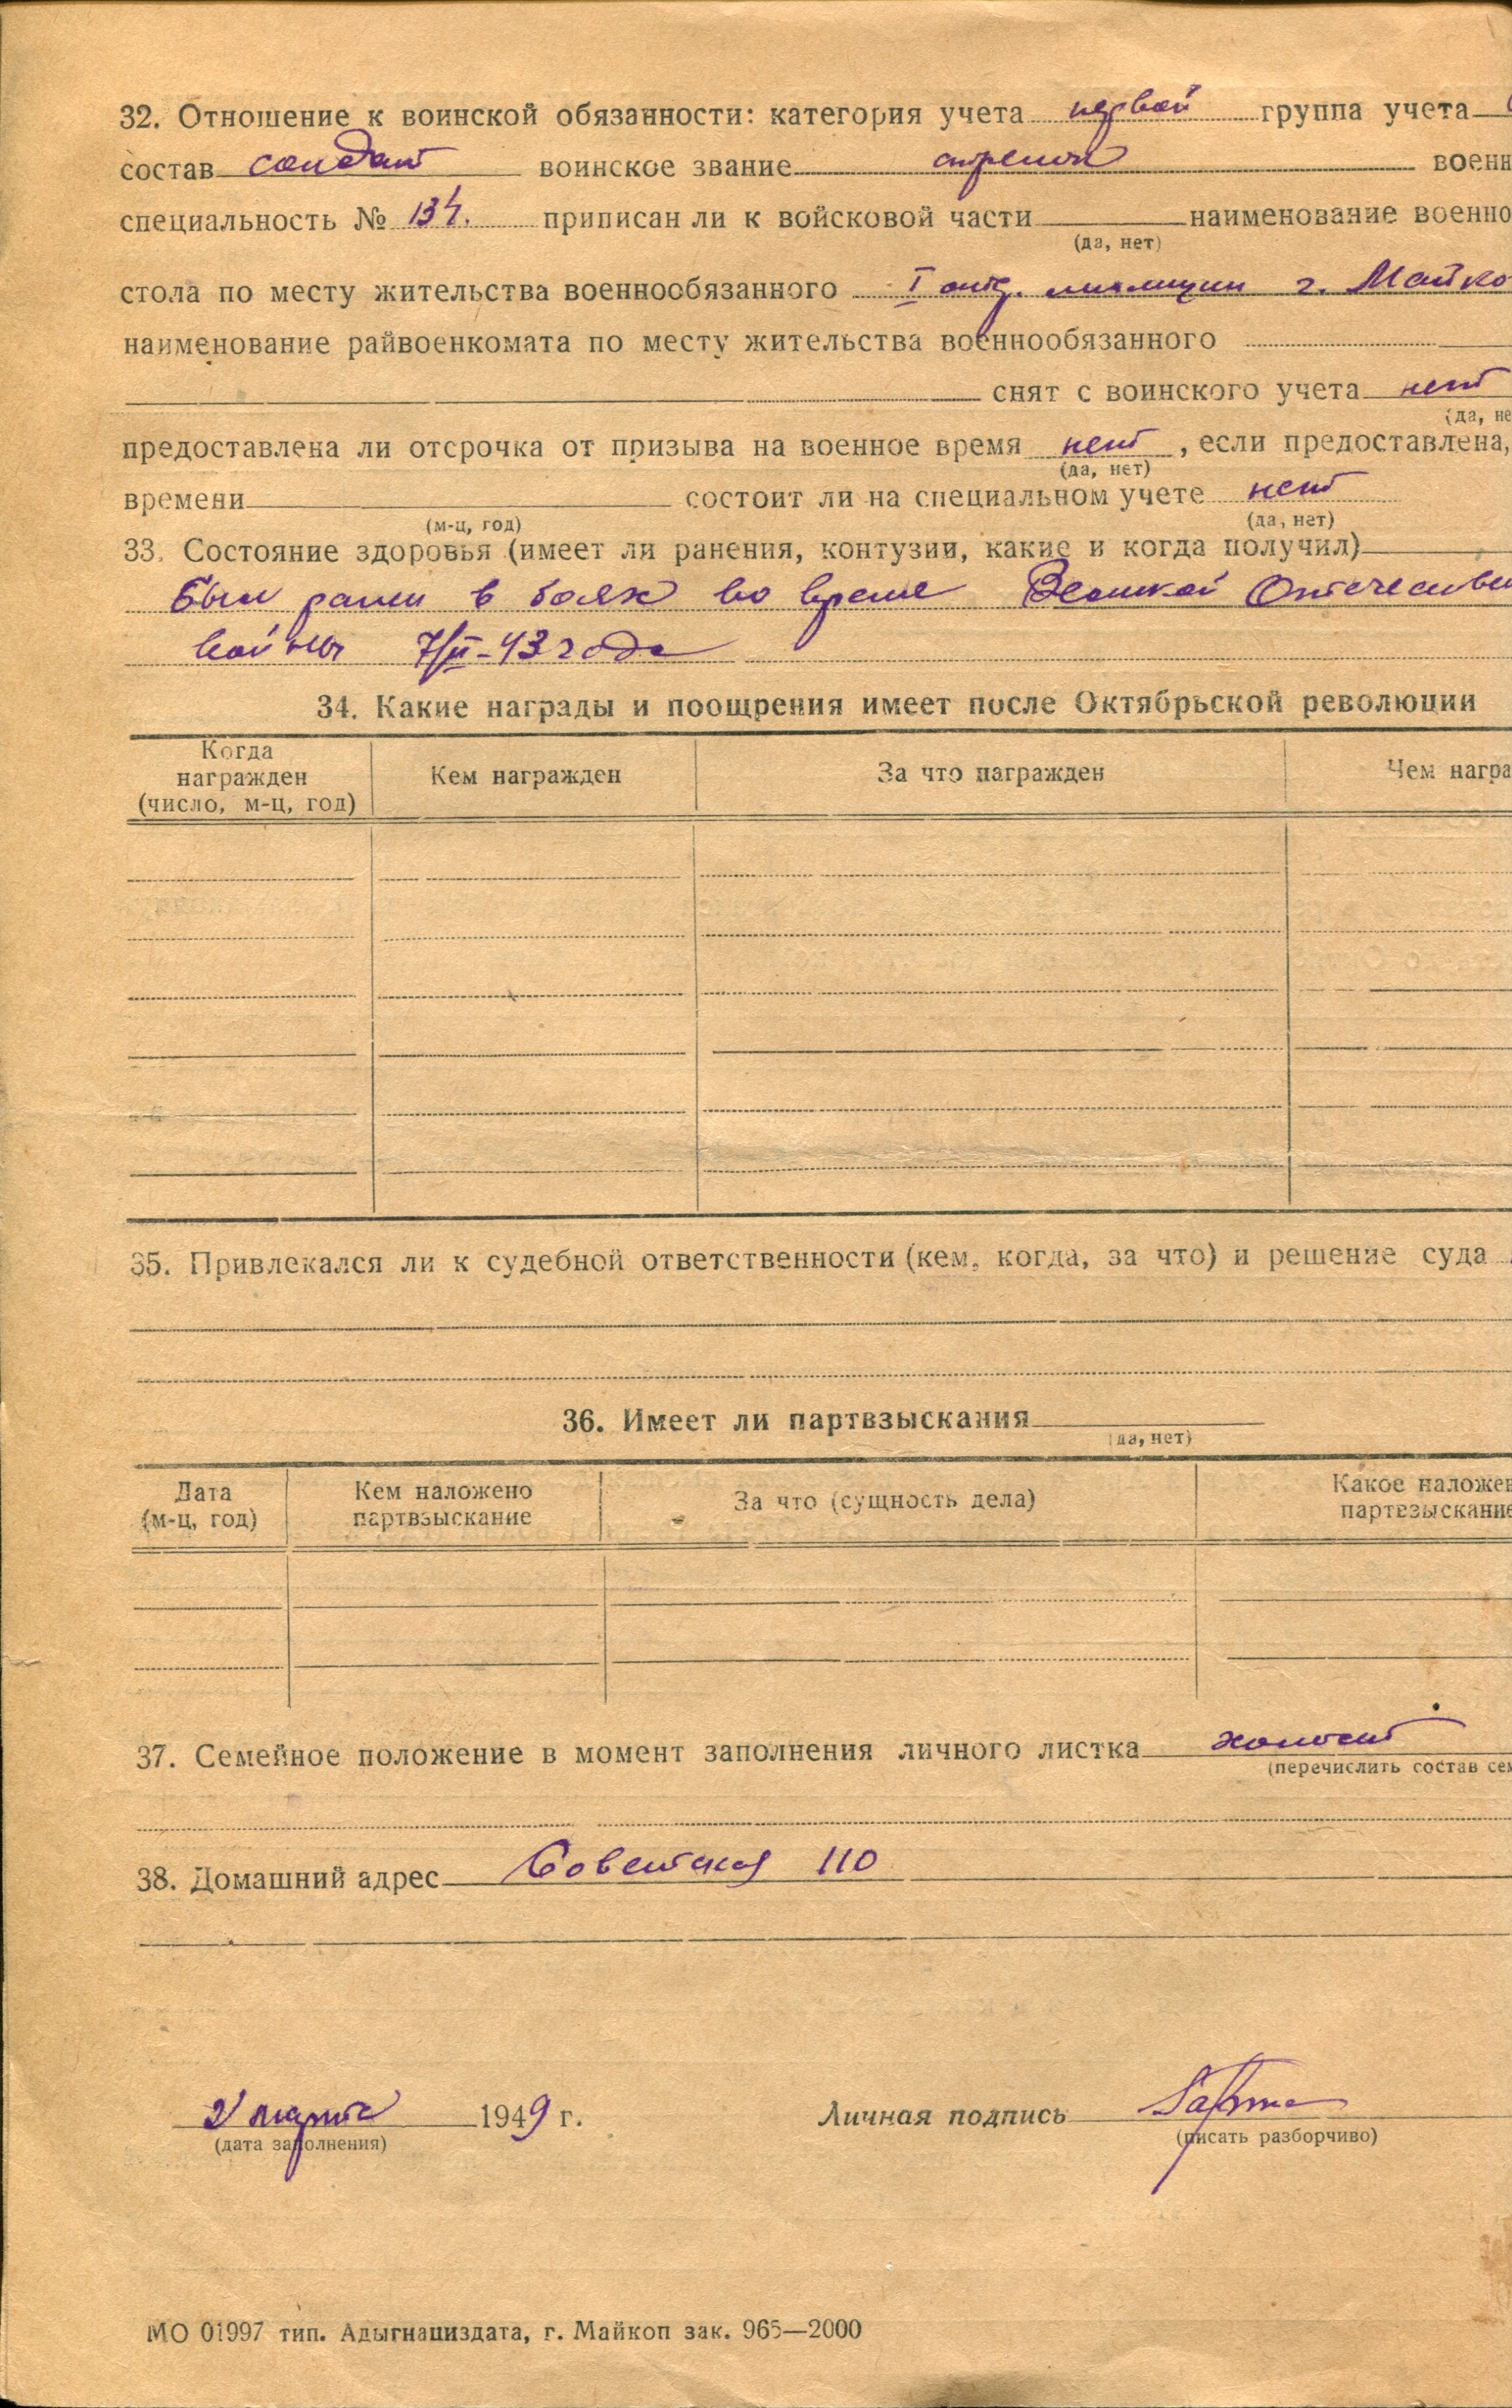 32. Отношение к воинской обязанности: категория учета первой группа учета
состав солдат воинское звание стрелок военн
специальность № 134. приписан ли к войсковой части наименование военно
(да, нет)
стола по месту жительства военнообязанного I отд. милиции г. Майко
наименование райвоенкомата по месту жительства военнообязанного
снят с воинского учета нет
(да, не
предоставлена ли отсрочка от призыва на военное время нет, если предоставлена,
(да, нет)
времени состоит ли на специальном учете нет
(м-ц, год) (да, нет)
33. Состояние здоровья (имеет ли ранения, контузии, какие и когда получил)
Был ранен в боях во время Великой Отечествен
войны 7/II-43 года
34. Какие награды и поощрения имеет после Октябрьской революции
Когда награжден (число, м-ц, год) Кем награжден За что награжден Чем награ
35. Привлекался ли к судебной ответственности (кем, когда, за что) и решение суда
36. Имеет ли партвзыскания
(да, нет)
Дата Кем наложено За что (сущность дела) Какое наложен
(м-ц, год) партвзыскание партвзыскание
37. Семейное положение в момент заполнения личного листка холост
(перечислить состав сем
38. Домашний адрес Советская 110
2 марта 1949 г. Личная подпись
(дата заполнения) (писать разборчиво)
МО 01997 тип. Адыгнациздата, г. Майкоп зак. 965—2000